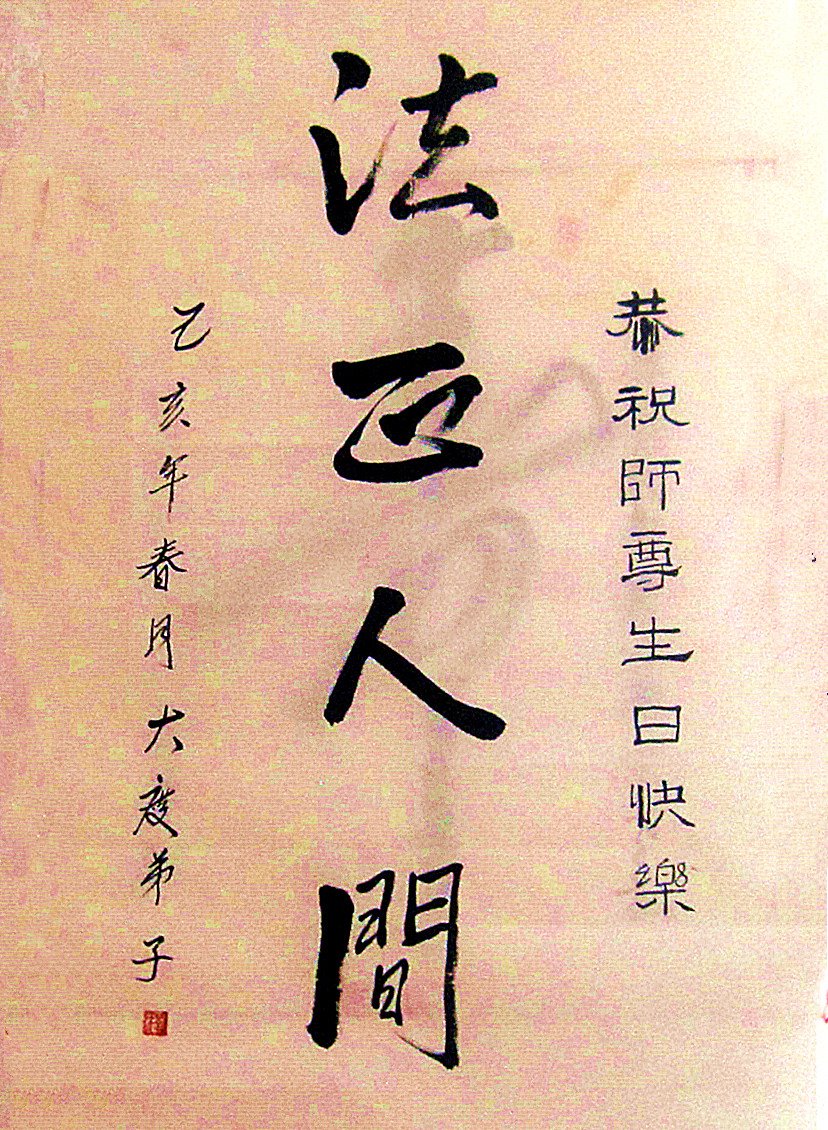 恭祝師尊生日快樂
法正人間
己亥年春月大慶弟子